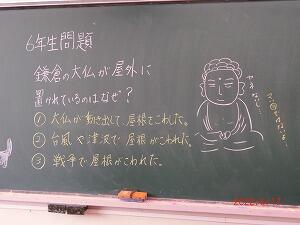 6年生問題
鎌倉の大仏が屋外に
置かれているのはなぜ？
① 大仏が動き出して屋根をこわした。
② 台風や津波で屋根がこわれた。
③ 戦争で屋根がこわれた。